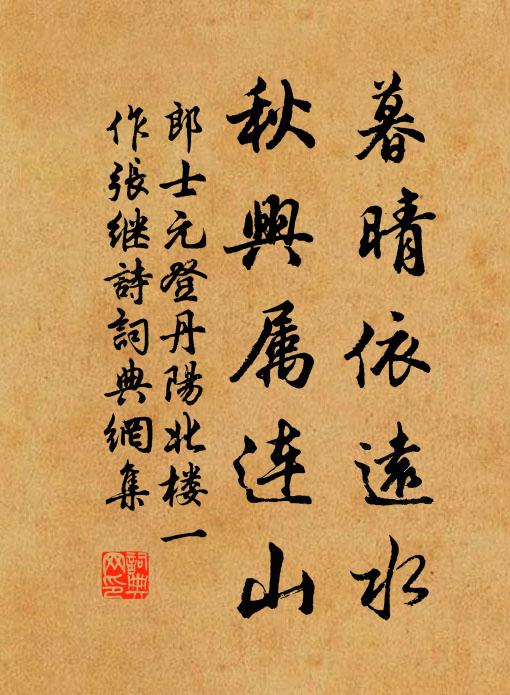 暮晴依遠水
秋興属连山
郎士元登丹陽北楼一
作張继詩詞典網集
詞典
网印